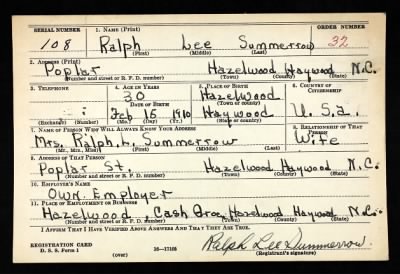 SERIAL NUMBER 1. NAME (Print) ORDER NUMBER
108 Ralph Lee Summerrow 32
(First) (Middle) (Last)
2. ADDRESS (Print)
Poplar Hazelwood Haywood N.C.
(Number and street or R. F. D. number) (Town) (County) (State)
3. TELEPHONE 4. AGE IN YEARS 5. PLACE OF BIRTH 6. COUNTRY OF CITIZENSHIP
30 Hazelwood
DATE OF BIRTH (Town or county)
Feb 15 1910 Haywood U.S.a.
(Exchange) (Number) (Mo.) (Day) (Yr.) (State or country)
7. NAME OF PERSON WHO WILL ALWAYS KNOW YOUR ADDRESS 8. RELATIONSHIP OF THAT PERSON
Mrs. Ralph. L. Summerrow Wife
(Mr., Mrs., Miss) (First) (Middle) (Last)
9. ADDRESS OF THAT PERSON
Poplar St. Hazelwood Haywood N.C.
(Number and street or R. F. D. number) (Town) (County) (State)
10. EMPLOYER'S NAME
Own. Employer
11. PLACE OF EMPLOYMENT OR BUSINESS
Hazelwood Cash Hazelwood Haywood N.C.
(Number and street or R. F. D. number) (Town) (County) (State)
I AFFIRM THAT I HAVE VERIFIED ABOVE ANSWERS AND THAT THEY ARE TRUE.
REGISTRATION CARD
D. S. S. Form 1 16-17105 Ralph Lee Summerrow
(over) (Registrant's signature)